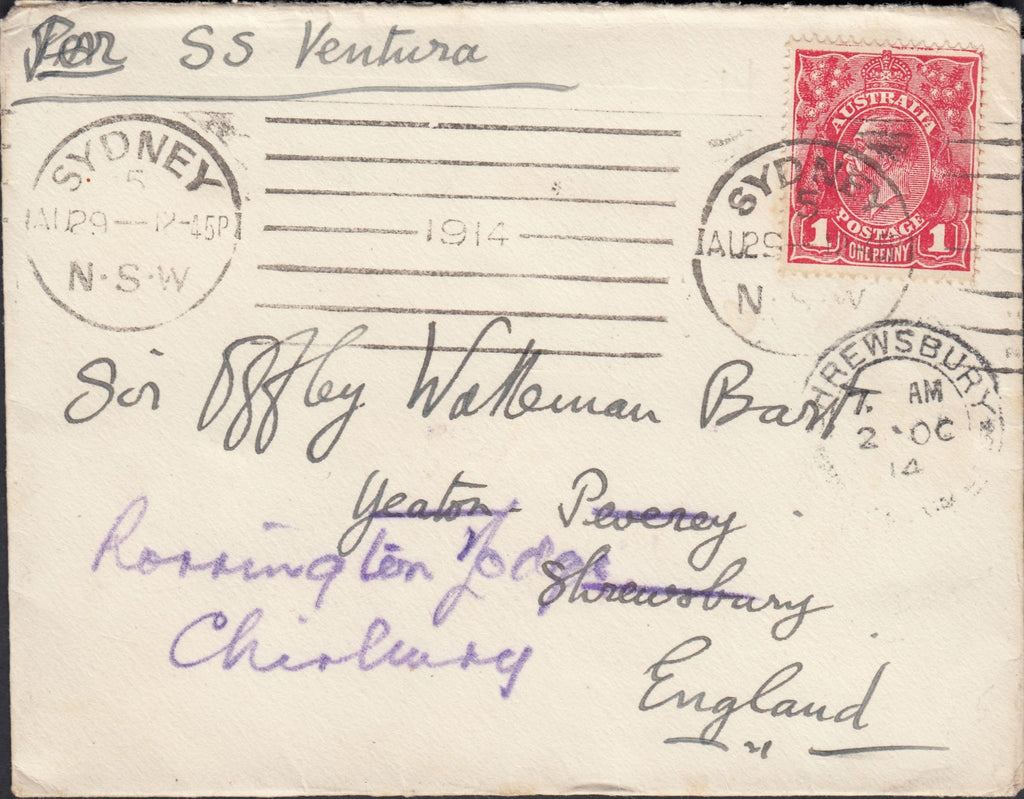 Per SS Ventura
SYDNEY
5
AU29 — 12-45P
N·S·W
1914
SYDNEY
5
AU29
N·S·W
AUSTRALIA
POSTAGE
1 ONE PENNY 1
SHREWSBURY
7. AM
2·OC
14
Sir Offley Wakeman Bart
Yeaton Peverey
Shrewsbury
England
Rorrington Lodge
Chirbury